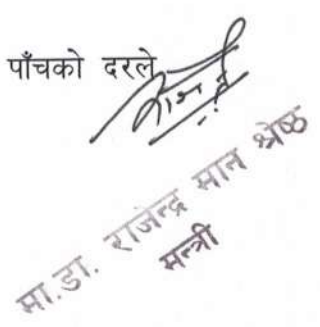 पाँचको दरले
मा.डा. राजेन्द्र मान श्रेष्ठ
मन्त्री